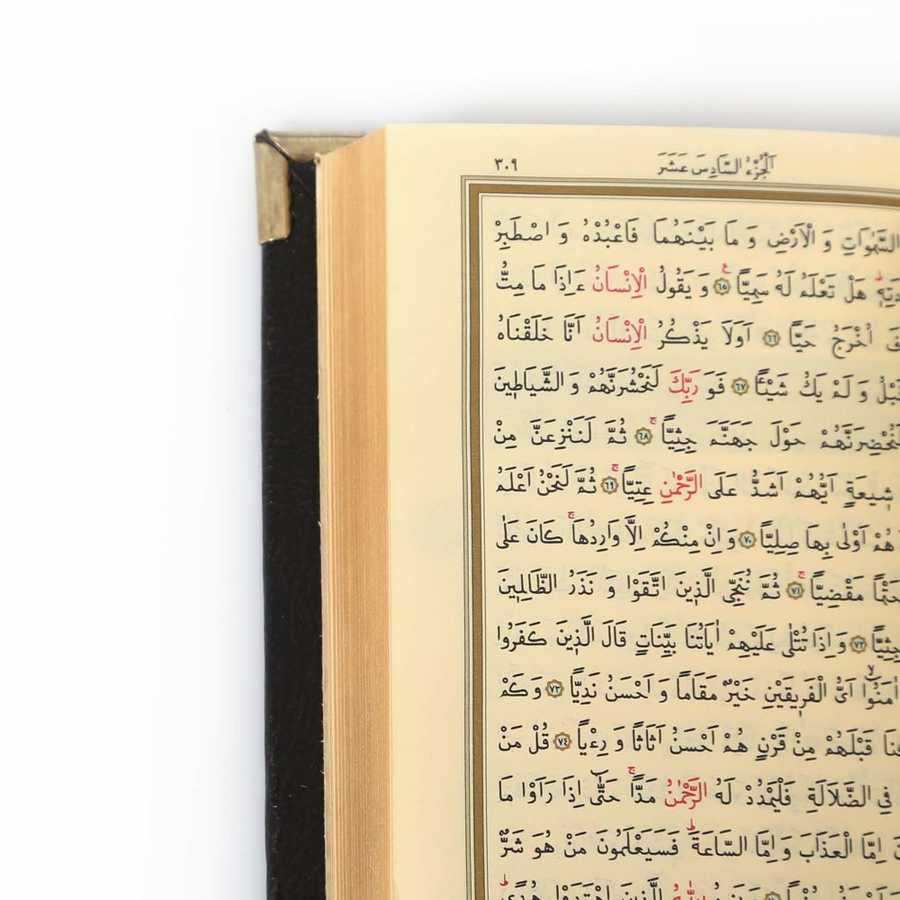 ٣٠٩ اَلْجُزْءُ السَّادِسَ عَشَرَ
السَّمٰوَاتِ وَ الْاَرْضِ وَ مَا بَيْنَهُمَا فَاعْبُدْهُ وَ اصْطَبِرْ
هَلْ تَعْلَمُ لَهُ سَمِيًّا ۟ ﴿٦٥﴾ وَ يَقُولُ الْاِنْسَانُ ءَاِذَا مَا مِتُّ
اُخْرَجُ حَيًّا ﴿٦٦﴾ اَوَلَا يَذْكُرُ الْاِنْسَانُ اَنَّا خَلَقْنَاهُ
وَ لَمْ يَكُ شَيْئًا ﴿٦٧﴾ فَوَ رَبِّكَ لَنَحْشُرَنَّهُمْ وَ الشَّيَاطِينَ
لَنُحْضِرَنَّهُمْ حَوْلَ جَهَنَّمَ جِثِيًّا ﴿٦٨﴾ ثُمَّ لَنَنْزِعَنَّ مِنْ
شِيعَةٍ اَيُّهُمْ اَشَدُّ عَلَى الرَّحْمٰنِ عِتِيًّا ﴿٦٩﴾ ثُمَّ لَنَحْنُ اَعْلَمُ
هُمْ اَوْلٰى بِهَا صِلِيًّا ﴿٧٠﴾ وَ اِنْ مِنْكُمْ اِلَّا وَارِدُهَا كَانَ عَلٰى
حَتْمًا مَقْضِيًّا ﴿٧١﴾ ثُمَّ نُنَجِّى الَّذِينَ اتَّقَوْا وَ نَذَرُ الظَّالِمِينَ
جِثِيًّا ﴿٧٢﴾ وَ اِذَا تُتْلٰى عَلَيْهِمْ اٰيَاتُنَا بَيِّنَاتٍ قَالَ الَّذِينَ كَفَرُوا
اٰمَنُوا اَىُّ الْفَرِيقَيْنِ خَيْرٌ مَقَامًا وَ اَحْسَنُ نَدِيًّا ﴿٧٣﴾ وَ كَمْ
قَبْلَهُمْ مِنْ قَرْنٍ هُمْ اَحْسَنُ اَثَاثًا وَ رِءْيًا ﴿٧٤﴾ قُلْ مَنْ
فِى الضَّلَالَةِ فَلْيَمْدُدْ لَهُ الرَّحْمٰنُ مَدًّا حَتّٰى اِذَا رَاَوْا مَا
اِمَّا الْعَذَابَ وَ اِمَّا السَّاعَةَ فَسَيَعْلَمُونَ مَنْ هُوَ شَرٌّ
اللّٰهُ الَّذِينَ اهْتَدَوْا هُدًى